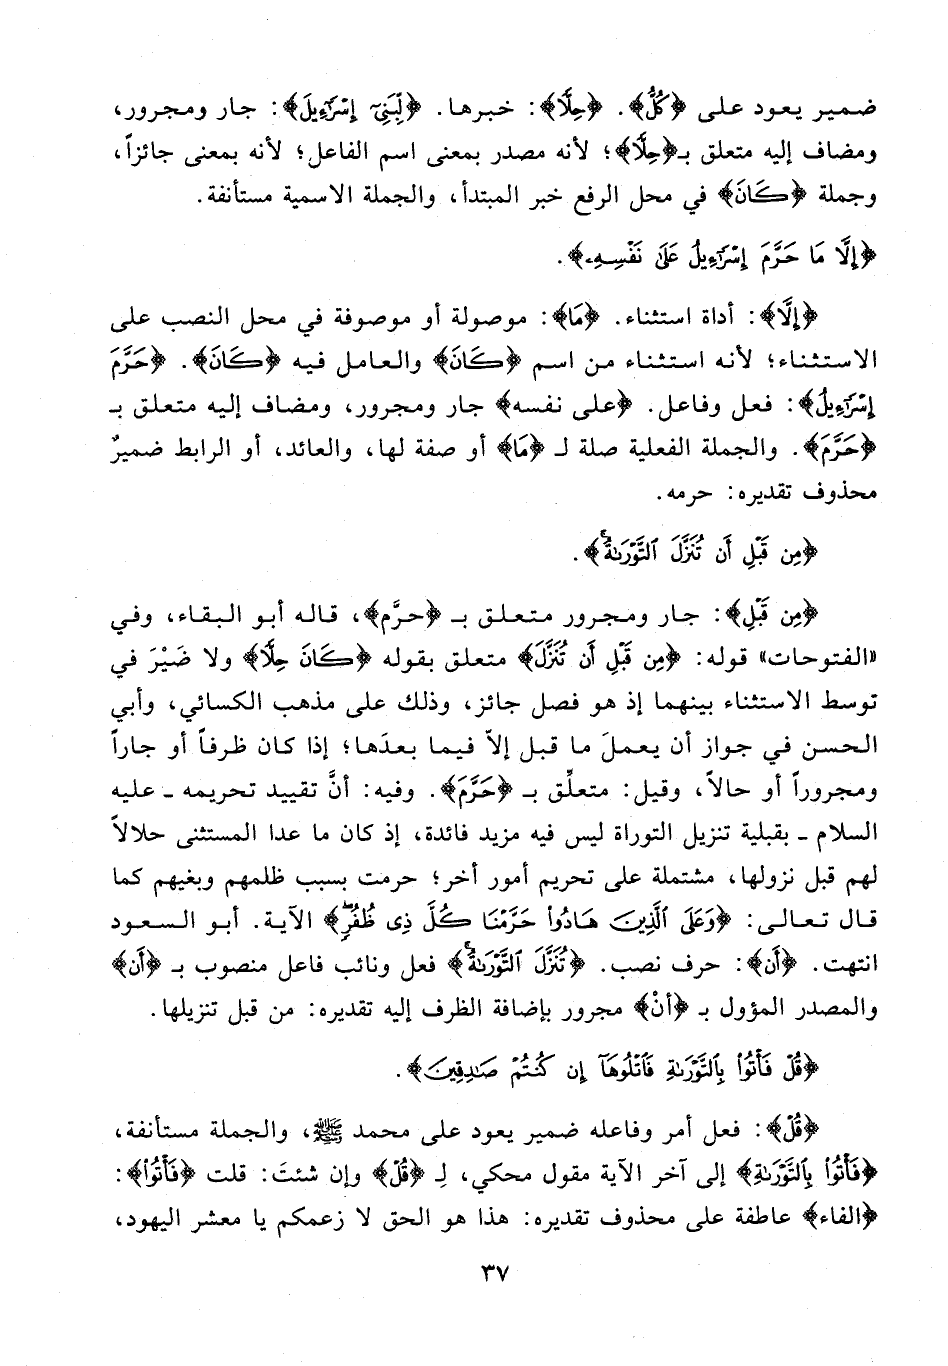 ضمير يعود على ﴿كُلُّ﴾. ﴿حِلًّا﴾: خبرها. ﴿لِّبَنِىٓ إِسْرَٰٓءِيلَ﴾: جار ومجرور،
ومضاف إليه متعلق بـ﴿حِلًّا﴾؛ لأنه مصدر بمعنى اسم الفاعل؛ لأنه بمعنى جائزاً،
وجملة ﴿كَانَ﴾ في محل الرفع خبر المبتدأ، والجملة الاسمية مستأنفة.
﴿إِلَّا مَا حَرَّمَ إِسْرَٰٓءِيلُ عَلَىٰ نَفْسِهِۦ﴾.
﴿إِلَّا﴾: أداة استثناء. ﴿مَا﴾: موصولة أو موصوفة في محل النصب على
الاستثناء؛ لأنه استثناء من اسم ﴿كَانَ﴾ والعامل فيه ﴿كَانَ﴾. ﴿حَرَّمَ
إِسْرَٰٓءِيلُ﴾: فعل وفاعل. ﴿على نفسه﴾ جار ومجرور، ومضاف إليه متعلق بـ
﴿حَرَّمَ﴾. والجملة الفعلية صلة لـ ﴿مَا﴾ أو صفة لها، والعائد، أو الرابط ضميرٌ
محذوف تقديره: حرمه.
﴿مِن قَبْلِ أَن تُنَزَّلَ ٱلتَّوْرَىٰةُ ۗ﴾.
﴿مِن قَبْلِ﴾: جار ومجرور متعلق بـ ﴿حرَّم﴾، قاله أبو البقاء، وفي
«الفتوحات» قوله: ﴿مِن قَبْلِ أَن تُنَزَّلَ﴾ متعلق بقوله ﴿كَانَ حِلًّا﴾ ولا ضَيْرَ في
توسط الاستثناء بينهما إذ هو فصل جائز، وذلك على مذهب الكسائي، وأبي
الحسن في جواز أن يعملَ ما قبل إلاّ فيما بعدَها؛ إذا كان ظرفاً أو جاراً
ومجروراً أو حالاً، وقيل: متعلِّق بـ ﴿حَرَّمَ﴾. وفيه: أنَّ تقييد تحريمه ـ عليه
السلام ـ بقبلية تنزيل التوراة ليس فيه مزيد فائدة، إذ كان ما عدا المستثنى حلالاً
لهم قبل نزولها، مشتملة على تحريم أمور أخر؛ حرمت بسبب ظلمهم وبغيهم كما
قال تعالى: ﴿وَعَلَى ٱلَّذِينَ هَادُوا۟ حَرَّمْنَا كُلَّ ذِى ظُفُرٍ ۖ﴾ الآية. أبو السعود
انتهت. ﴿أَن﴾: حرف نصب. ﴿تُنَزَّلَ ٱلتَّوْرَىٰةُ ۗ﴾ فعل ونائب فاعل منصوب بـ ﴿أَن﴾
والمصدر المؤول بـ ﴿أَنْ﴾ مجرور بإضافة الظرف إليه تقديره: من قبل تنزيلها.
﴿قُلْ فَأْتُوا۟ بِٱلتَّوْرَىٰةِ فَٱتْلُوهَآ إِن كُنتُمْ صَٰدِقِينَ﴾.
﴿قُلْ﴾: فعل أمر وفاعله ضمير يعود على محمد ﷺ، والجملة مستأنفة،
﴿فَأْتُوا۟ بِٱلتَّوْرَىٰةِ﴾ إلى آخر الآية مقول محكي، لِـ ﴿قُلْ﴾ وإن شئتَ: قلت ﴿فَأْتُوا۟﴾:
﴿الفاء﴾ عاطفة على محذوف تقديره: هذا هو الحق لا زعمكم يا معشر اليهود،
٣٧